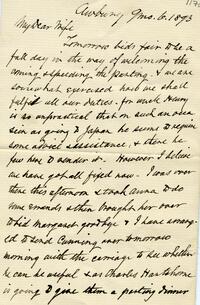 Awbury 9mo. 6. 1893
My Dear Wife
Tomorrow bids fair to be a
full day in the way of welcoming the
coming & speeding the parting - & we are
somewhat exercised how we shall
fulfil all our duties - for while Henry
is so unpractical that on such an occa
sion as going to Japan he seems to require
some advice & assistance, & there be
few here to render it. However I believe
we have got all fixed now - I was over
there this afternoon & took Anna to do
some errands & then brought her over
to bid Margaret goodbye & I have arran-
ged to send Cunning over tomorrow
morning with the carriage to be whether
he can be useful as Charles Hartshorne
is going to give them a parting dinner